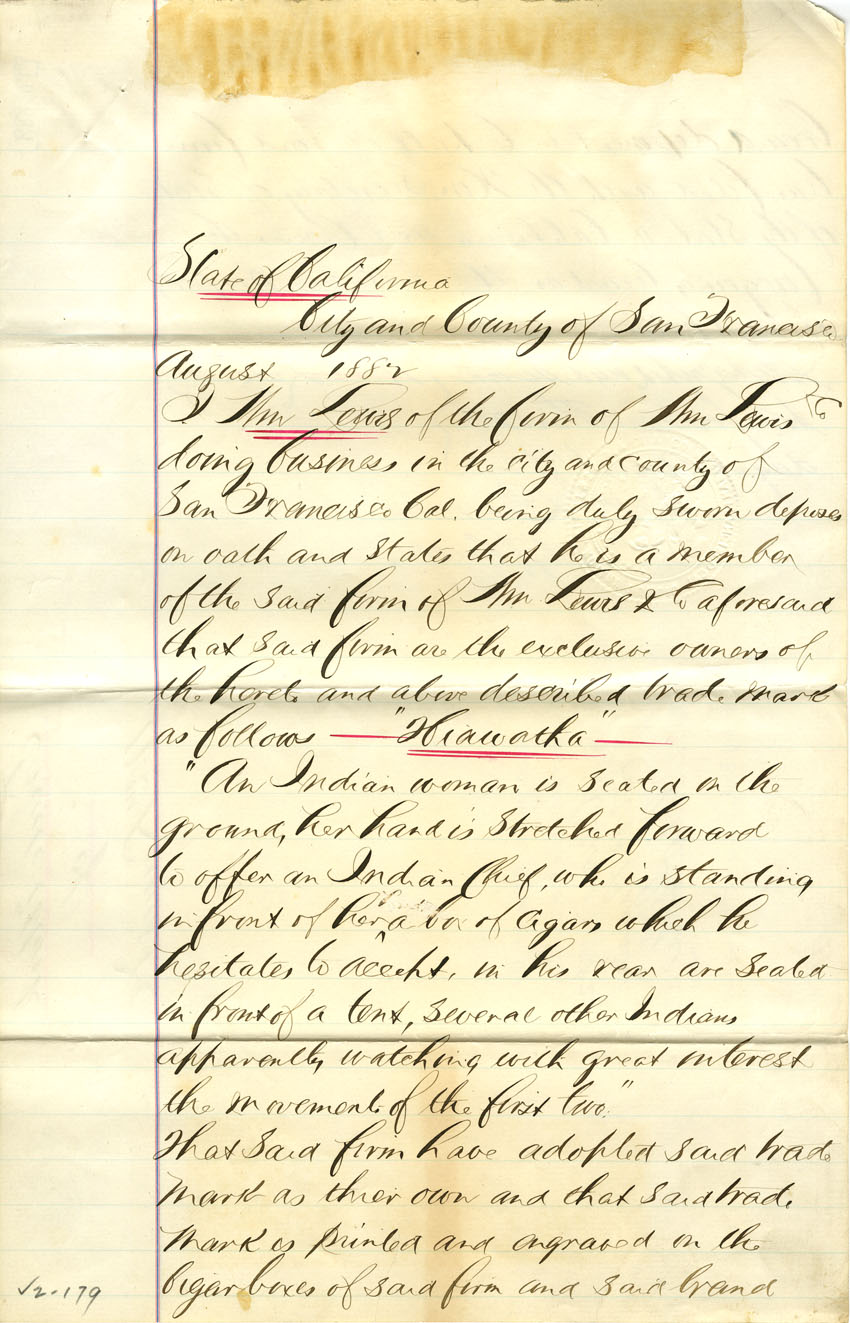 State of California
City and County of San Francisco
August 1882
I Wm Lewis of the firm of Wm Lewis & Co
doing business in the city and county of
San Francisco Cal. being duly sworn deposes
on oath and states that he is a member
of the said firm of Wm Lewis & Co aforesaid
that said firm are the exclusive owners of
the hereto and above described trade mark
as follows — "Hiawatha" —
"An Indian woman is seated on the
ground, her hand is stretched forward
to offer an Indian Chief, who is standing
in front of her a box of cigars which he
hesitates to accept, in his rear are seated
in front of a tent, several other Indians
apparently watching with great interest
the movements of the first two."
That said firm have adopted said trade
mark as thier own and that said trade
mark is printed and engraved on the
Cigar boxes of said firm and said brand
V2-179